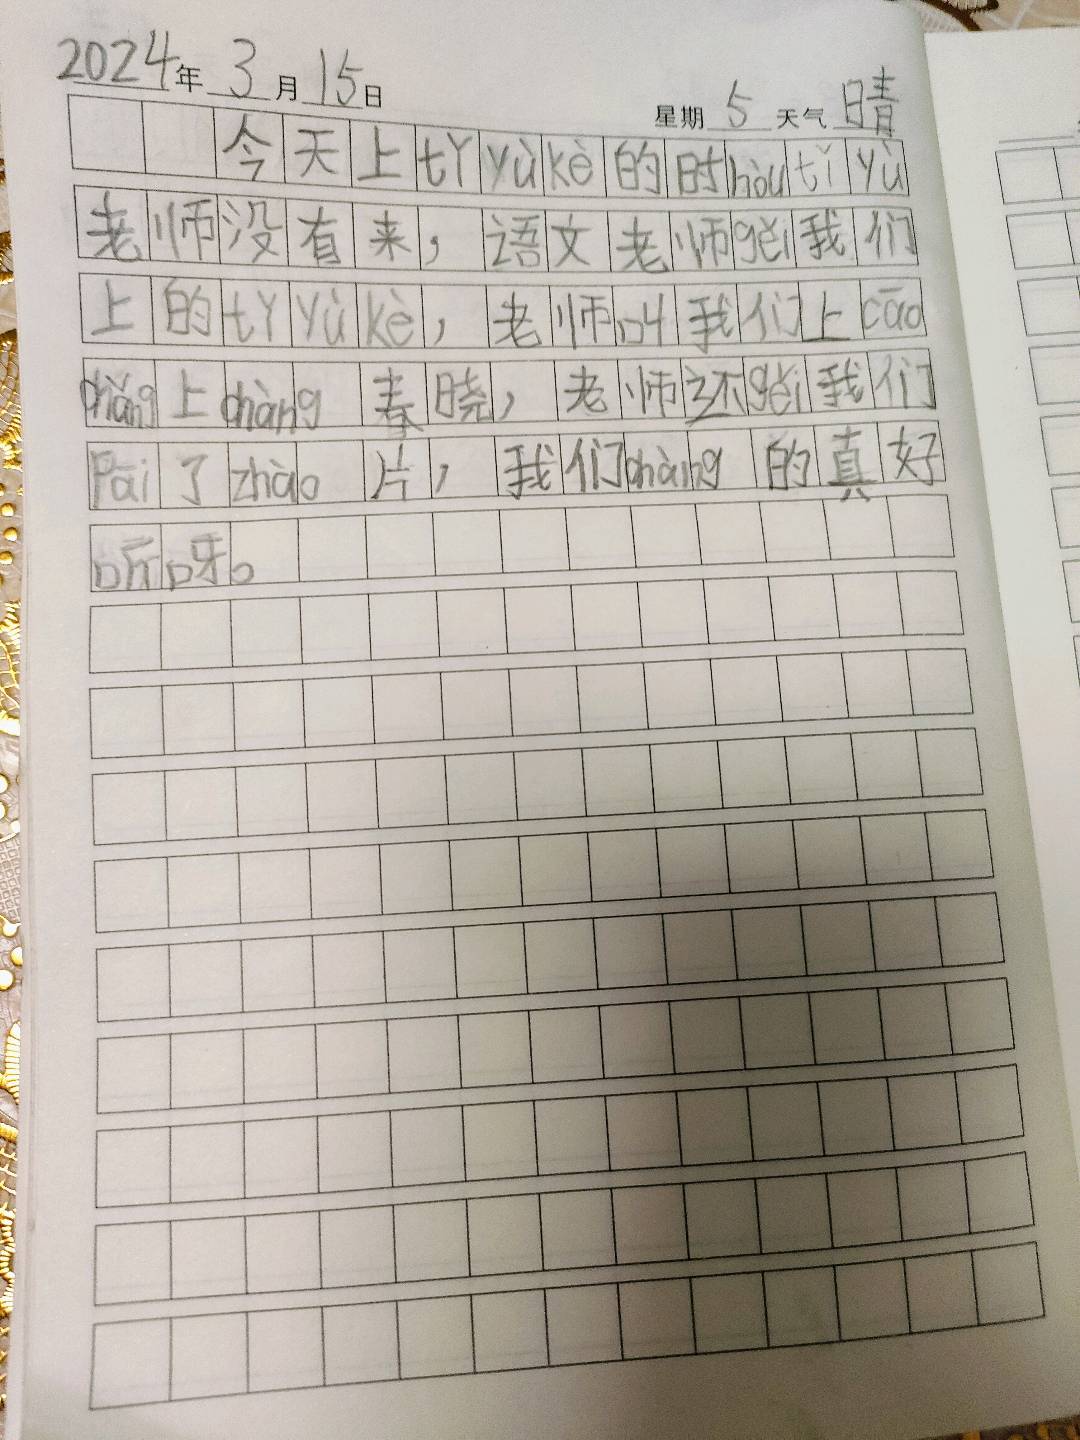 2024年3月15日
星期5天气晴
今天上tǐyùkè的时hòutǐyù
老师没有来，语文老师gěi我们
上的tǐyùkè，老师叫我们上cāo
chǎng上chàng春晓，老师还gěi我们
Pāi了zhào片，我们chàng的真好
听呀。